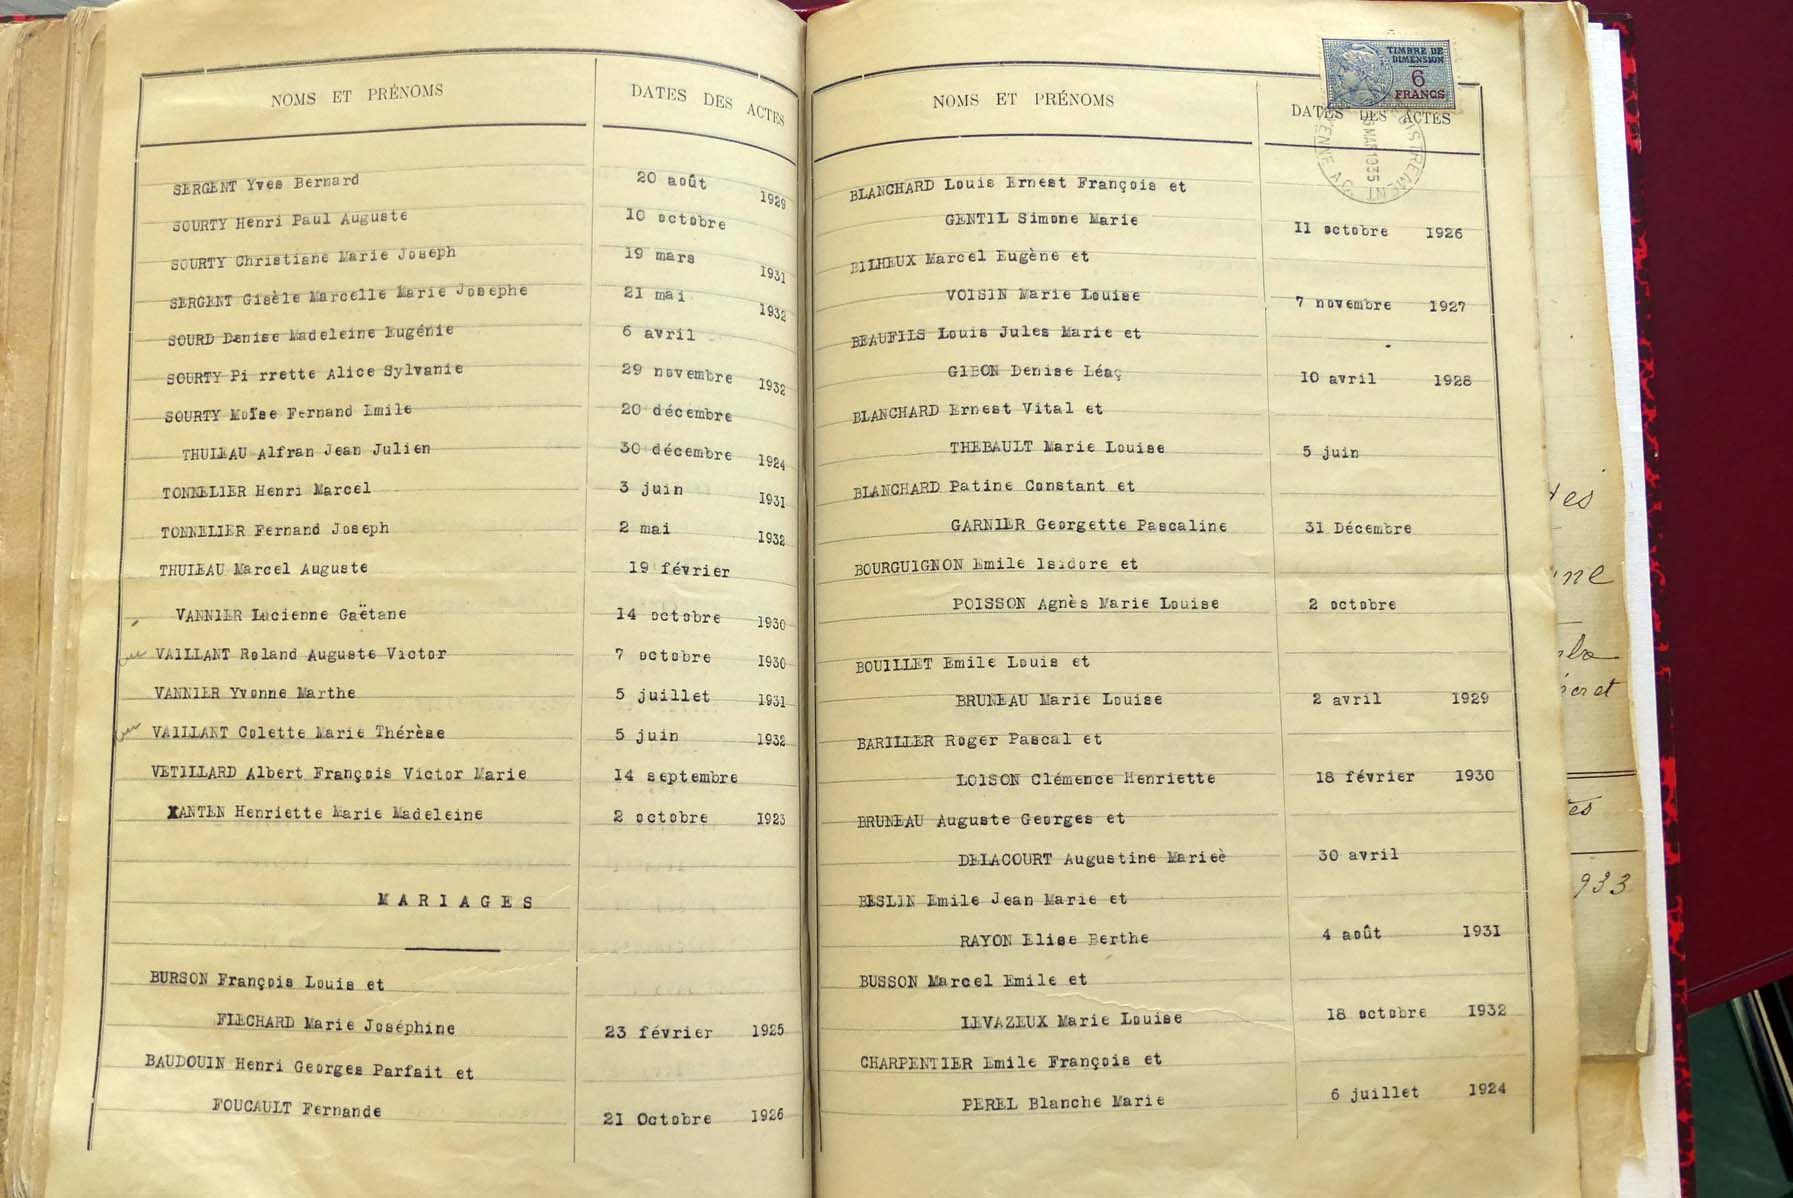 NOMS ET PRÉNOMS DATES DES ACTES
SERGENT Yves Bernard 20 août 1929
SOURTY Henri Paul Auguste 10 octobre
SOURTY Christiane Marie Joseph 19 mars 1931
SERGENT Gisèle Marcelle Marie Josephe 21 mai 1932
SOURD Denise Madeleine Eugénie 6 avril
SOURTY Pi rrette Alice Sylvanie 29 novembre 1932
SOURTY Moïse Fernand Emile 20 décembre
THULEAU Alfran Jean Julien 30 décembre 1924
TONNELIER Henri Marcel 3 juin 1931
TONNELIER Fernand Joseph 2 mai 1932
THULEAU Marcel Auguste 19 février
VANNIER Lucienne Gaëtane 14 octobre 1930
VAILLANT Roland Auguste Victor 7 octobre 1930
VANNIER Yvonne Marthe 5 juillet 1931
VAILLANT Colette Marie Thérèse 5 juin 1932
VETILLARD Albert François Victor Marie 14 septembre
XANTEN Henriette Marie Madeleine 2 octobre 1923
MARIAGES
BURSON François Louis et
FLECHARD Marie Joséphine 23 février 1925
BAUDOUIN Henri Georges Parfait et
FOUCAULT Fernande 21 Octobre 1926
TIMBRE DE DIMENSION
6 FRANCS
NOMS ET PRÉNOMS DATES DES ACTES
BLANCHARD Louis Ernest François et
GENTIL Simone Marie 11 octobre 1926
BILHEUX Marcel Eugène et
VOISIN Marie Louise 7 novembre 1927
BEAUFILS Louis Jules Marie et
GIBON Denise Léaç 10 avril 1928
BLANCHARD Ernest Vital et
THEBAULT Marie Louise 5 juin
BLANCHARD Patine Constant et
GARNIER Georgette Pascaline 31 Décembre
BOURGUIGNON Emile Isidore et
POISSON Agnès Marie Louise 2 octobre
BOUILLET Emile Louis et
BRUNEAU Marie Louise 2 avril 1929
BARILLER Roger Pascal et
LOISON Clémence Henriette 18 février 1930
BRUNEAU Auguste Georges et
DELACOURT Augustine Marieè 30 avril
BESLIN Emile Jean Marie et
RAYON Elise Berthe 4 août 1931
BUSSON Marcel Emile et
LEVAZEUX Marie Louise 18 octobre 1932
CHARPENTIER Emile François et
PEREL Blanche Marie 6 juillet 1924